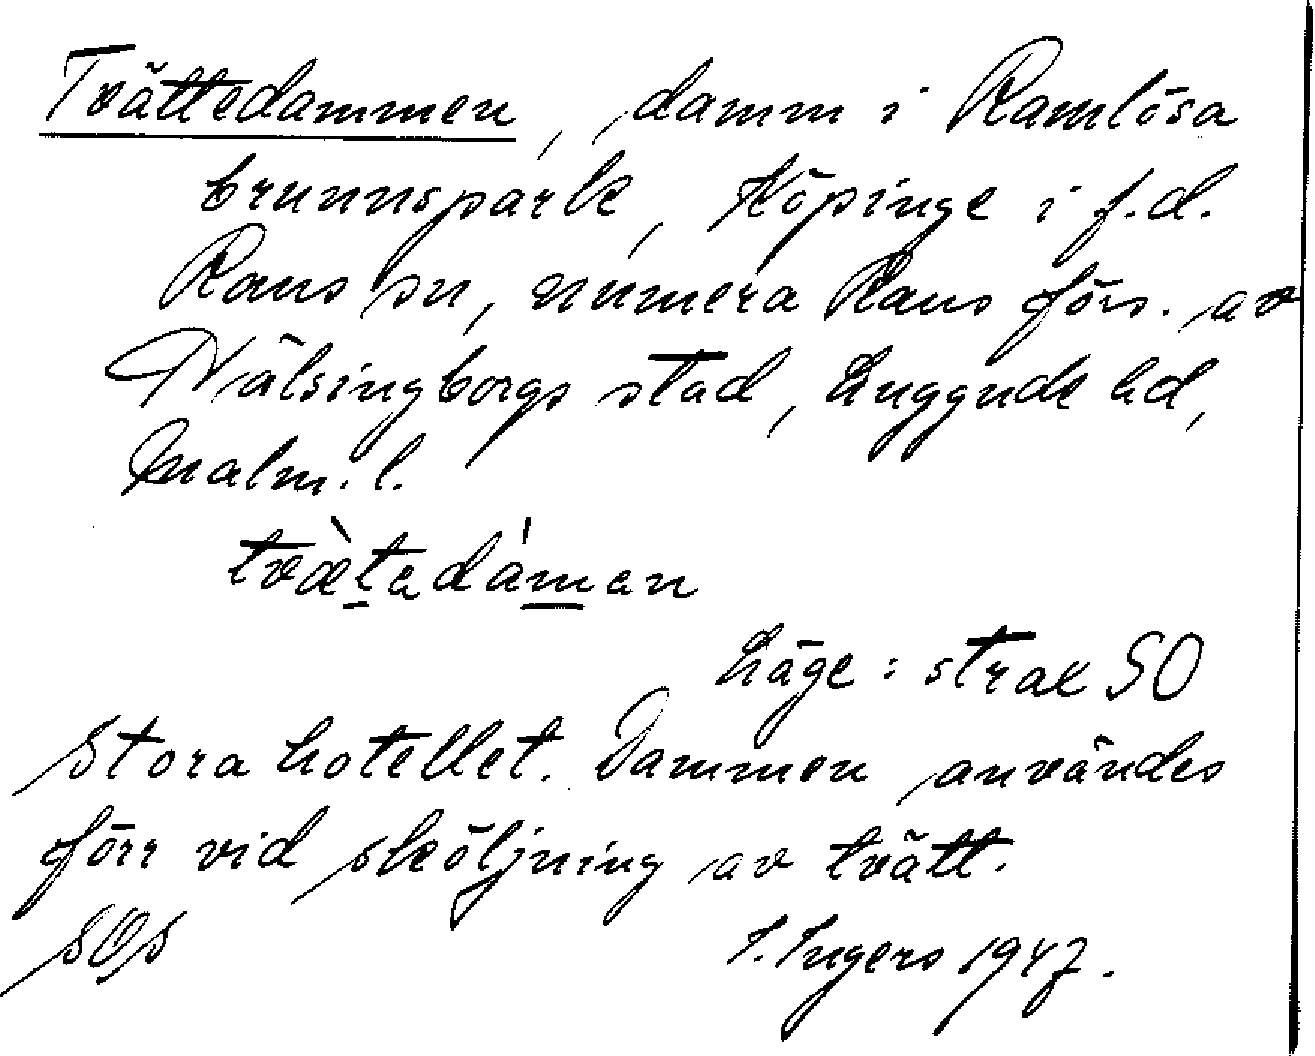 Tvättedammen, damm i Ramlösa
brunnspark, Köpinge i f.d.
Raus sn, numera Raus förs. av
Hälsingborgs stad, Luggude hd,
Malm. l.
tvæ̀tedámen
Läge: strax SO
Stora hotellet. Dammen användes
förr vid sköljning av tvätt.
I. Ingers 1947.